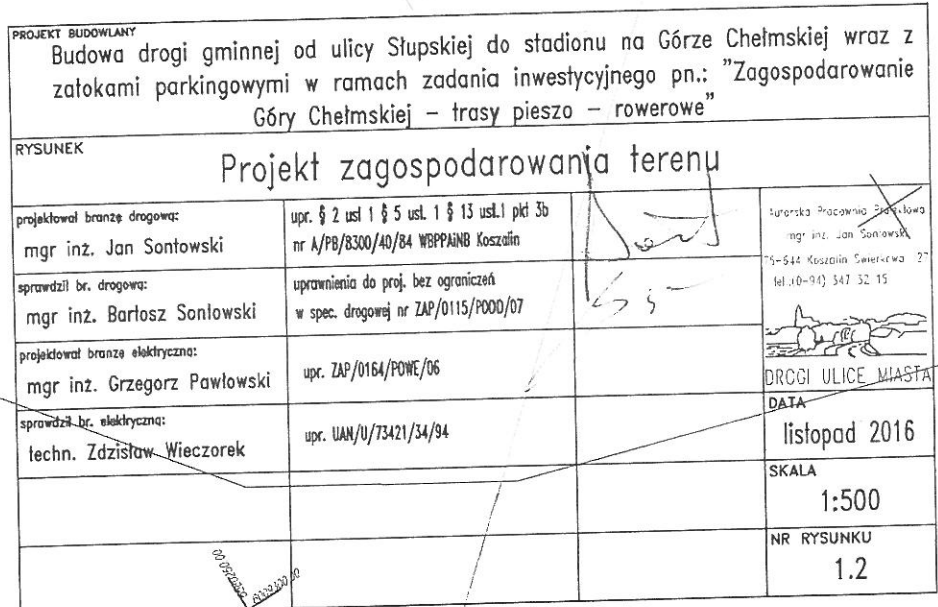 PROJEKT BUDOWLANY
Budowa drogi gminnej od ulicy Słupskiej do stadionu na Górze Chełmskiej wraz z
zatokami parkingowymi w ramach zadania inwestycyjnego pn.: "Zagospodarowanie
Góry Chełmskiej – trasy pieszo – rowerowe"
RYSUNEK
Projekt zagospodarowania terenu
projektował branżę drogową:
mgr inż. Jan Sontowski
upr. § 2 ust 1 § 5 ust. 1 § 13 ust.1 pkt 3b
nr A/PB/8300/40/84 WBPPAiNB Koszalin
sprawdził br. drogową:
mgr inż. Bartosz Sontowski
uprawnienia do proj. bez ograniczeń
w spec. drogowej nr ZAP/0115/POOD/07
projektował branżę elektryczną:
mgr inż. Grzegorz Pawłowski
upr. ZAP/0164/POWE/06
sprawdził br. elektryczną:
techn. Zdzisław Wieczorek
upr. UAN/U/73421/34/94
Autorska Pracownia Projektowa
mgr inż. Jan Sontowski
75-644 Koszalin Świerkowa 27
tel.:(0-94) 347 32 15
DROGI ULICE MIASTA
DATA
listopad 2016
SKALA
1:500
NR RYSUNKU
1.2